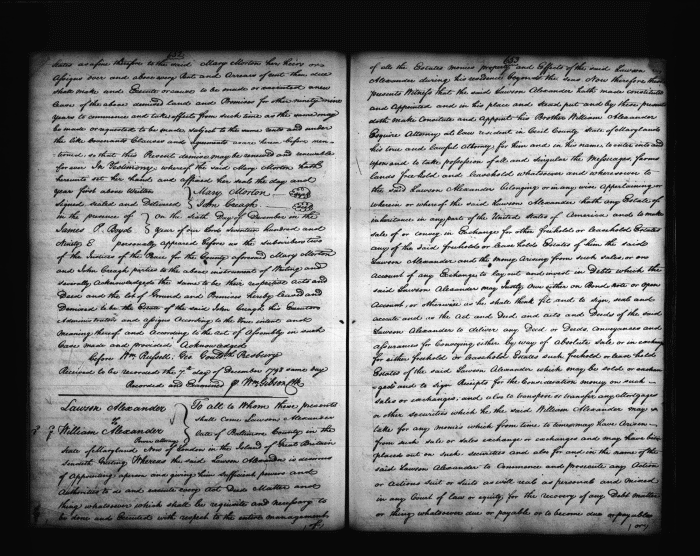 652
dates as afore therefore to the said Mary Morton her heirs or
Assigns over and above every Rent and Arrears of rent then due
shall make and Execute or cause to be made or executed a new
lease of the above demised Land and Premises for other ninety nine
years to commence and take effect from such time as the same may
be made or requested to be made subject to the same rents and under
the like Covenants Clauses and agreements as are herein before con-
tained so that this Present demise may be renewed and renewable
for ever In Testimony whereof the said Mary Morton hath
hereunto set her hand and affixed her seal the day and
Year first above Written
Mary Morton
Signed sealed and Delivered
John Creagh
in the presence of
on the Sixth Day of December in the
James P. Boyd
Year of our Lord Seventeen hundred and
Ninety personally appeared before us the subscribers two
of the Justices of the Peace for the County aforesaid Mary Morton
and John Creagh parties to the above instrument of Writing and
severally Acknowledged the same to be their respective Acts and
Deed and the lot of Ground and Premises hereby leased and
Demised to be the Estate of the said John Creagh his Executors
Administrators and assigns According to the true intent and
Meaning thereof and According to the act of Assembly in such
Case made and provided Acknowledged
before Wm Russell. Geo
Received to be recorded the 7th day of December 1793 same day
Recorded and Examined Wm Gibson Clk
Lawson Alexander
To all to Whom these presents
to
shall Come Lawson Alexander
William Alexander
late of Baltimore County in the
Power attorney
State of Maryland Now of London in the Island of Great Britain
sendeth Greeting Whereas the said Lawson Alexander is desirous
of appointing a person and giving him sufficient powers and
Authorities to do and execute every Act Deed Matter and
thing whatsoever which shall be requisite and necessary to
be done and Executed with respect to the entire management
(of)
653
of all the Estates monies property and Effects of the said Lawson
Alexander during his residence beyond the seas Now therefore these
presents Witness that the said Lawson Alexander hath made constituted
and appointed and in his place and stead put and by these presents
doth make Constitute and Appoint his Brother William Alexander
Esquire Attorney at law resident in Cecil County State of Maryland
his true and lawful Attorney for him and in his name to enter into and
upon and to take possession of all and Singular the Messuages farms
lands freehold and leasehold whatsoever and wheresoever to
the said Lawson Alexander belonging or in any wise Appertaining or
wherein or whereof the said Lawson Alexander hath any Estate of
inheritance in any part of the United States of America and to make
sale of or convey in Exchange for other freehold or leasehold Estates
any of the said freeholds or lease hold Estates of him the said
Lawson Alexander and the Money Arising from such sales, or on
account of any Exchange to lay out and invest in Debts which the
said Lawson Alexander may Justly Owe either on Bond note or open
Account, or otherwise as he shall think fit and to sign, seal and
execute and as the Act and Deed and acts and Deeds of the said
Lawson Alexander to deliver any Deed or Deeds, conveyances and
assurances for Conveying either by way of Absolute sale or in exchange
for either freehold or leasehold Estates such freehold or lease hold
Estates of the said Lawson Alexander which may be sold or exchan
ged and to sign Receipts for the Consideration money on such
sales or exchanges, and also to transfer or any Mortgages
or other securities which he the said William Alexander may
take for any monies which from time to time may have Arisen
from such sale or sales exchange or exchanges and may have been
placed out on such securities and also for and in the name of the
said Lawson Alexander to Commence and prosecute any Action
or Actions suit or suits as well real as personal and mixed
in any Court of law or equity for the recovery of any Debt matter
or thing whatsoever due or payable or to become due or payable
(or)